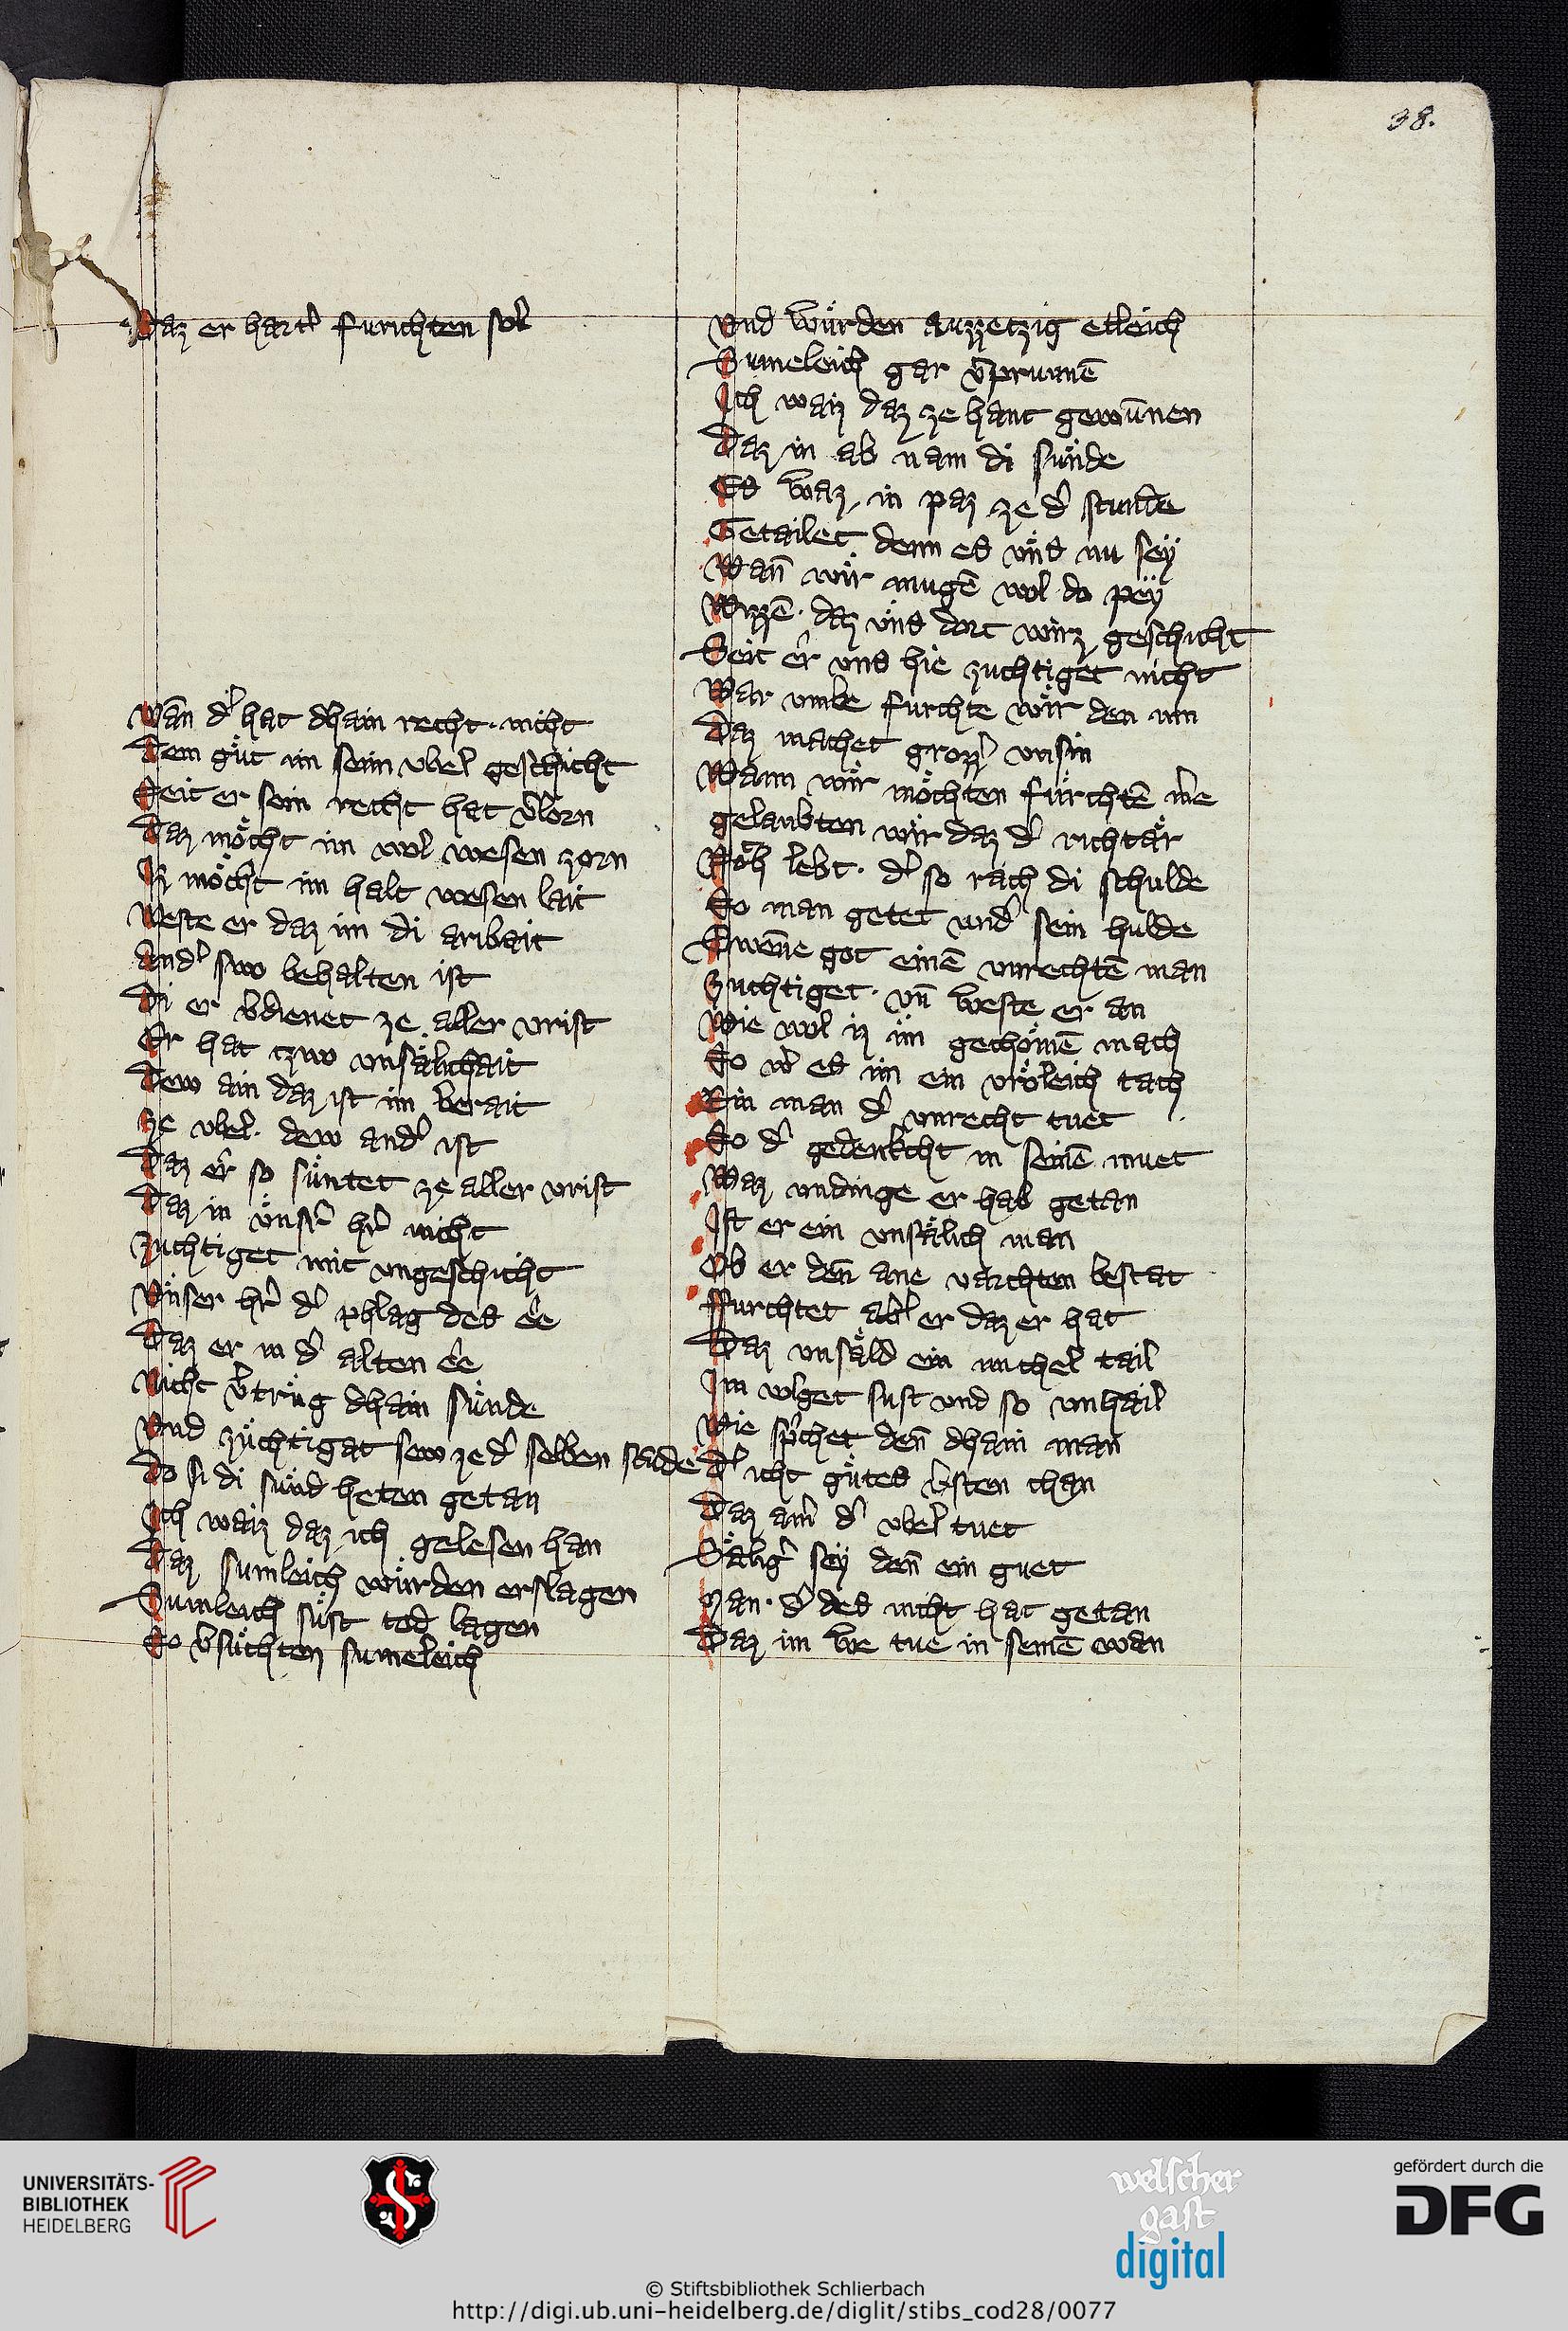 38.
Daz er hart&#x27; furichten sol
Wān d&#x27; hat dhain recht · nicht
Dem gůt im sein vbel geschicht
Seit er sein recht hat v&#x27;lorn
Daz möcht im wol wesen zorn
Iz möcht im halt wesen lait
Weste er daz im di aribait
And&#x27;swo behalten ist
Di er v&#x27;dienet ze aller vrist
Er hat tzwo vnsälichait
Dew ain daz ist im berait
Ze vbel · dew and&#x27; ist
Daz er so süntet ze aller vrist
Daz in vns&#x27; h&#x27;r nicht
Zuchtiget mit vngeschicht
Vnser h&#x27;r d&#x27; phlag des ee
Daz er in d&#x27; alten ee
Nicht v&#x27;trüg dhain sünde
Vnd züchtigat sew ze d&#x27; selben stūde
Do si di sünd heten getan
Ich waiz daz ich gelesen han
Daz sumleich würden erslagen
Sumleich süst tod lagen
So v&#x27;suchten sumeleich
Vnd würden auzzetzig etleich
Sumeleich gar v&#x27;prunnē
Ich waiz daz ze hant gewūnen
Daz in ab nam di sünde
Es waz in paz ze d&#x27; stunde
Getailet denn es vns nu sey
Wañ wir mugē wol do pey
Wizzē · daz vns dort wirz geschicht
Seit er vns hie zuchtiget nicht
War vmbe furchte wir den in
Daz machet grozz&#x27; vnsin
Wann wir möchten fürchtē m&#x27;e
gelaubten wir daz d&#x27; richtär
Noh lebt · d&#x27; so rach di schulde
So man getet vnd&#x27; sein hulde
Swenne got einē vnrechtē man
Zuchtiget · vñ weste er an
Wie wol iz im gechömē mach
So w&#x27; es im ein vröleich tach
Ein man d&#x27; vnrecht tuet
So d&#x27; gedenkcht in seinē muet
Waz vndinge er hab getan
Ist er ein vnsälich man
Ob er deñ ane varchten bestat
Ffurchtet ab&#x27; er daz er hat
Daz vnsäld ein michel tail
Im volget sust vnd so vnhail
Wie sp&#x27;chet deñ dhain man
D&#x27; icht gütes v&#x27;sten chan
Daz aim d&#x27; vbel tuet
Sälig&#x27; sey deñ ein guet
Man · d&#x27; des nicht hat getan
Daz im we tue in seinē wan
UNIVERSITÄTS-
BIBLIOTHEK
HEIDELBERG
S
welscher
gast
digital
gefördert durch die
DFG
© Stiftsbibliothek Schlierbach
http://digi.ub.uni-heidelberg.de/diglit/stibs_cod28/0077